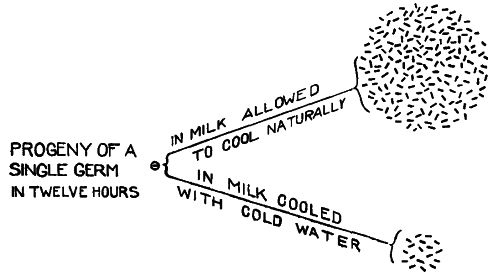 PROGENY OF A
SINGLE GERM
IN TWELVE HOURS
IN MILK ALLOWED
TO COOL NATURALLY
IN MILK COOLED
WITH COLD WATER